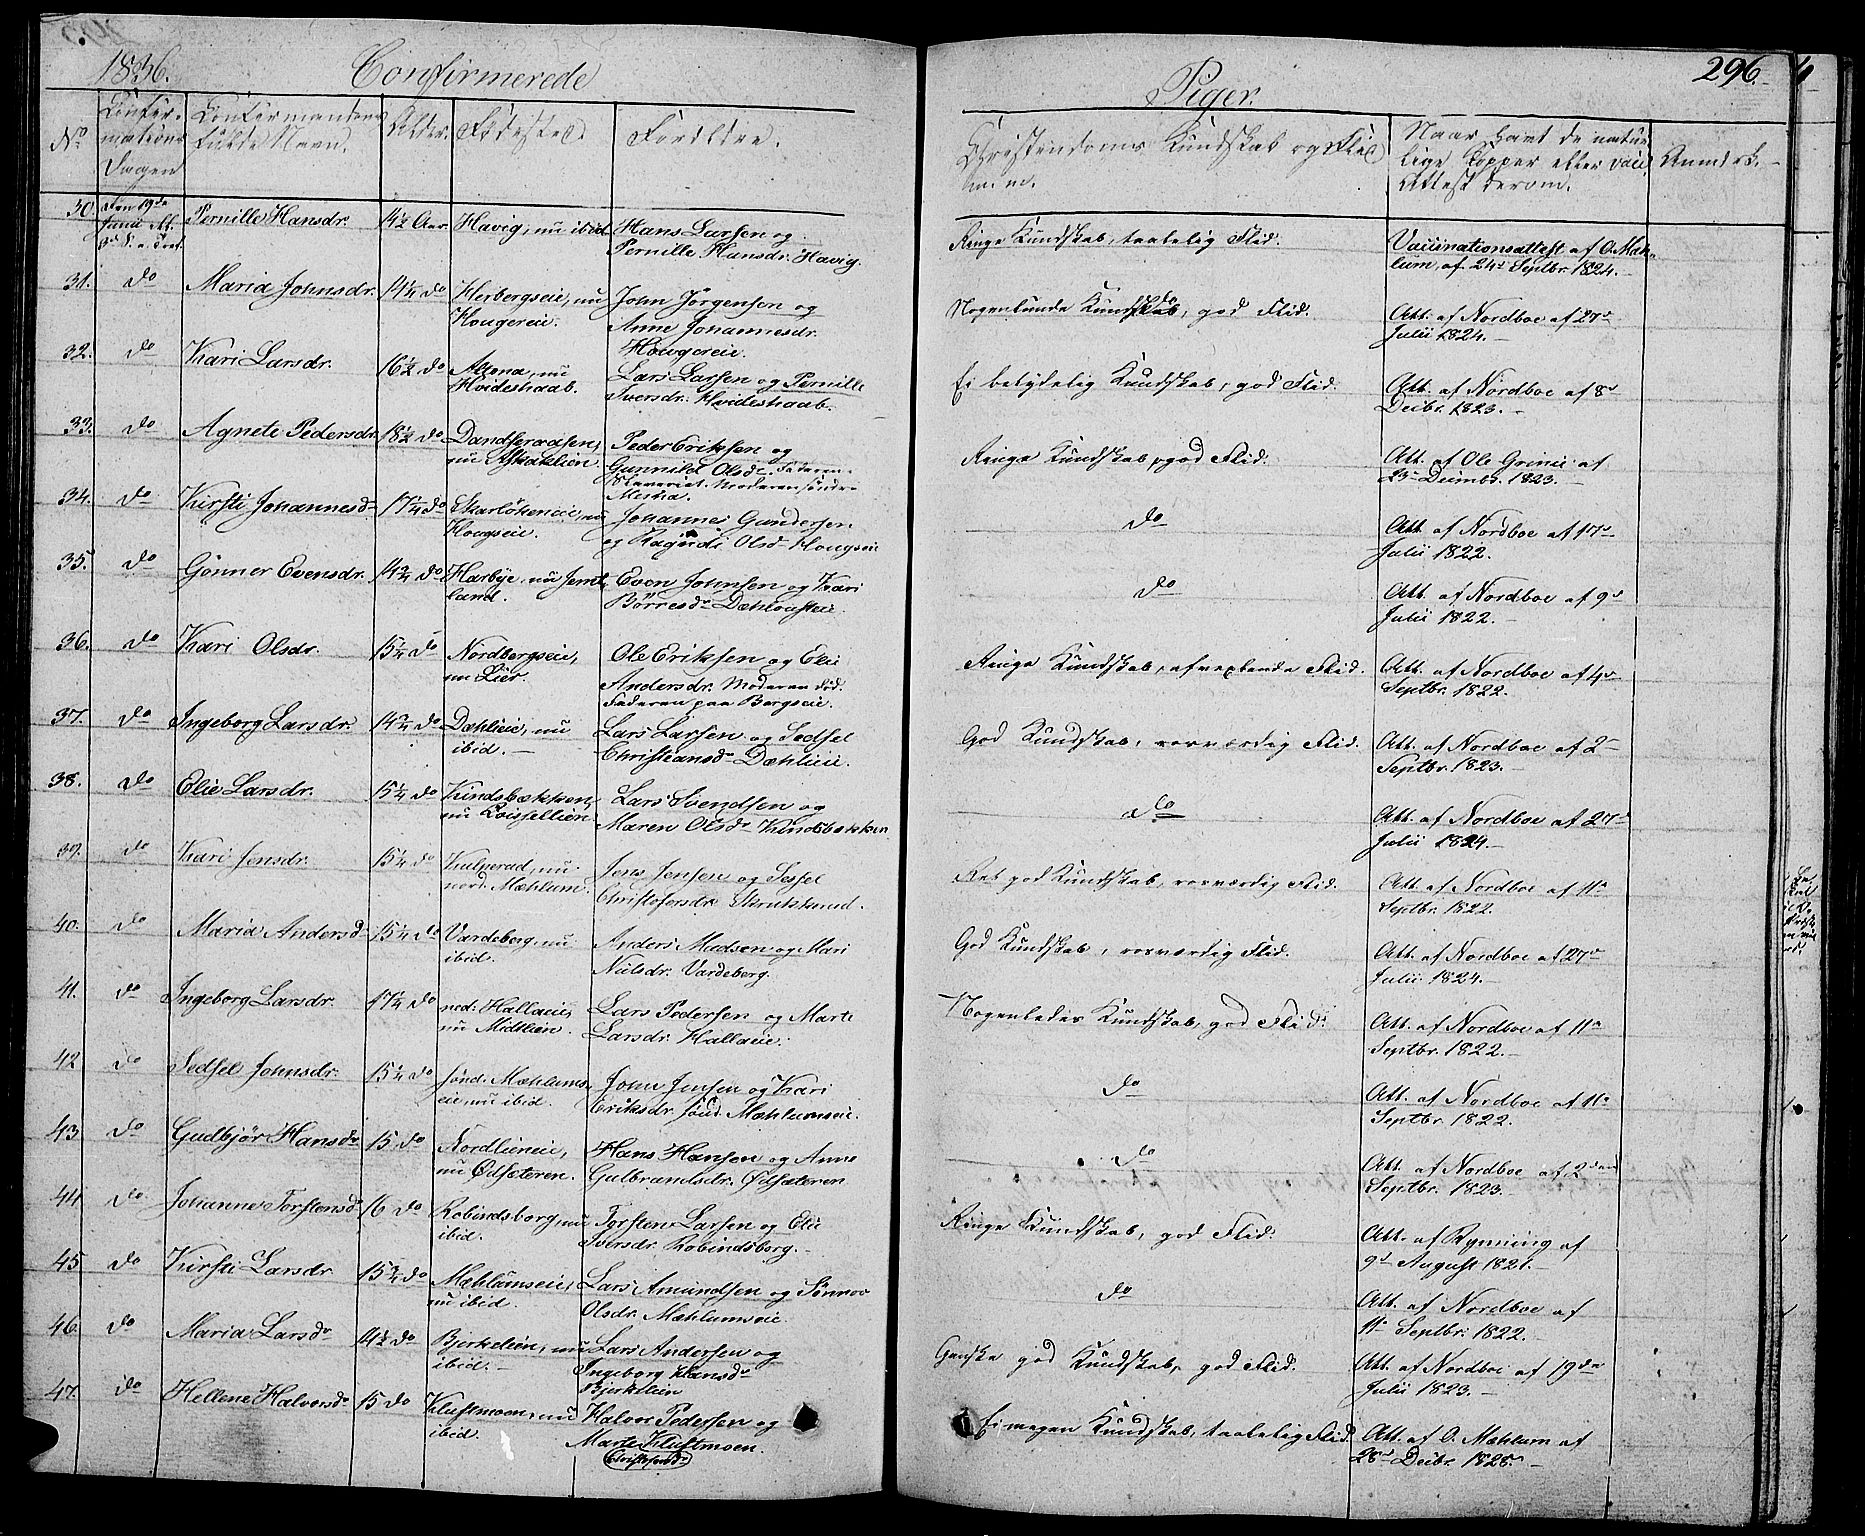 1836. Confirmerede Piger. 296.
No
Confirmations Dagen
Confirmandens fulde Navn.
Alder.
Fødested.
Forældre.
Christendoms Kundskab og Flid m. m.
Naar havt de naturlige Kopper eller vacc. Attest derom.
Anmærk.
30. den 19de Junii Pernille Hansdr. 14½ Aar. Havig, nu ibid Hans Larsen og
Pernille Hansdr. Havig.
Ringe Kundskab, taalelig Flid. Vaccinationsattest af O. Mæhlum, af 24d Septbr. 1824.
31. do Maria Johnsdr. 14¼ do Herbergseie, nu John Jörgensen og
Hougereie. Anne Johannesdr.
Hougereie.
Nogenlunde Kundskab, god Flid. Att. af Nordboe af 27d
Julii 1824.
32. do Kari Larsdr. 16½ do Altona, nu Lars Larsen og Pernille
Hvideskaab. Iversdr. Hvideskaab.
Ei betydelig Kundskab, god Flid. Att. af Nordboe af 8d
Decbr. 1823.
33. do Agnete Pedersdr. 18½ do Dandseraasen, Peder Eriksen og
nu Gunnild Olsdr. Faderen
Slaveriet. Moderen söndre
Ringe Kundskab, god Flid. Att. af Ole Grinie af
23d Decmbr. 1823.
34. do Kirsti Johannesdr 17¼ do Skarlökeneie, nu Johannes Gundersen
Hougseie. og Ragndi Olsdr Hougseie
do Att. af Nordboe af 17d
Julii 1822.
35. do Gönner Evensdr. 14¾ do Harbye, nu Jemtland. Even Johnsen og Kari
Börresdr Dæhlousteie.
do Att. af Nordboe af 9d
Julii 1822.
36. do Kari Olsdr. 15¼ do Nordbergseie, Ole Eriksen og Elie
nu Lier. Andersdr. Moderen död.
Faderen paa Bergseie.
Ringe Kundskab, afvexlende Flid. Att. af Nordboe af 4d
Septbr. 1822.
37. do Ingeborg Larsdr. 14¾ do Dæhlieie, nu Lars Larsen og Sedsel
ibid. Christiansdr Dæhlieie.
God Kundskab, rosværdig Flid. Att. af Nordboe af 2d
Septbr. 1823.
38. do Elie Larsdr. 15¼ do Kindsbækken, Lars Svendsen og
nu Loissellien. Maren Olsdr Kindsbækken
do Att. af Nordboe af 27d
Julii 1824.
39. do Kari Jensdr. 15¼ do Kulperad, nu Jens Jensen og Sessel
nord. Mæhlum. Christofersdr. Skrukkerud.
Ret god Kundskab, rosværdig Flid. Att. af Nordboe af 11d
Septbr. 1822.
40. do Maria Andersdr 15¼ do Vardeberg, nu Anders Madsen og Mari
ibid. Nielsdr. Vardeberg.
God Kundskab, rosværdig Flid. Att. af Nordboe af 27d
Julii 1824.
41. do Ingeborg Larsdr. 17¼ do ned. Hallaeie, Lars Pedersen og Marte
nu Midtlien. Larsdr. Hallaeie.
Nogenledes Kundskab, god Flid. Att. af Nordboe af 11d
Septbr. 1822.
42 do Sedsel Johnsdr. 15¼ do sönd. Mæhlumseie, nu ibid. John Jensen og Kari
Eriksdr. sönd. Mæhlumseie.
do Att. af Nordboe af 11d
Septbr. 1822.
43 do Gudbjör Hansdr 15 do Nordlieneie, Hans Hansen og Anne
nu Ödsæteren. Gulbrandsdr. Ödsæteren
do Att. af Nordboe af 2den
Septbr. 1823.
44. do Johanne Torstensdr 16 do Robindsborg, nu Torsten Larsen og Elie
ibid. Iversdr. Robindsborg.
Ringe Kundskab, god Flid. Att. af Rynning af
9d August 1821.
45. do Kirsti Larsdr. 15¾ do Mæhlumseie, Lars Amundsen og Sönnov
nu ibid. Olsdr. Mæhlumseie.
do Att. af Nordboe af
11d Septbr. 1822.
46. do Maria Larsdr 14½ do Bjerkelien, nu Lars Andersen og
ibid. Ingeborg Hansdr
Bjerkelien
Ganske god Kundskab, god Flid. Att. af Nordboe af 19de
Julii 1823.
47. do Hellene Halvorsdr 15 do Kluftmoen, nu Halvor Pedersen og
ibid. Marte Kluftmoen.
Christofersdr
Ei megen Kundskab, taalelig Flid. Att. af O. Mæhlum af
28d Decbr. 1828.